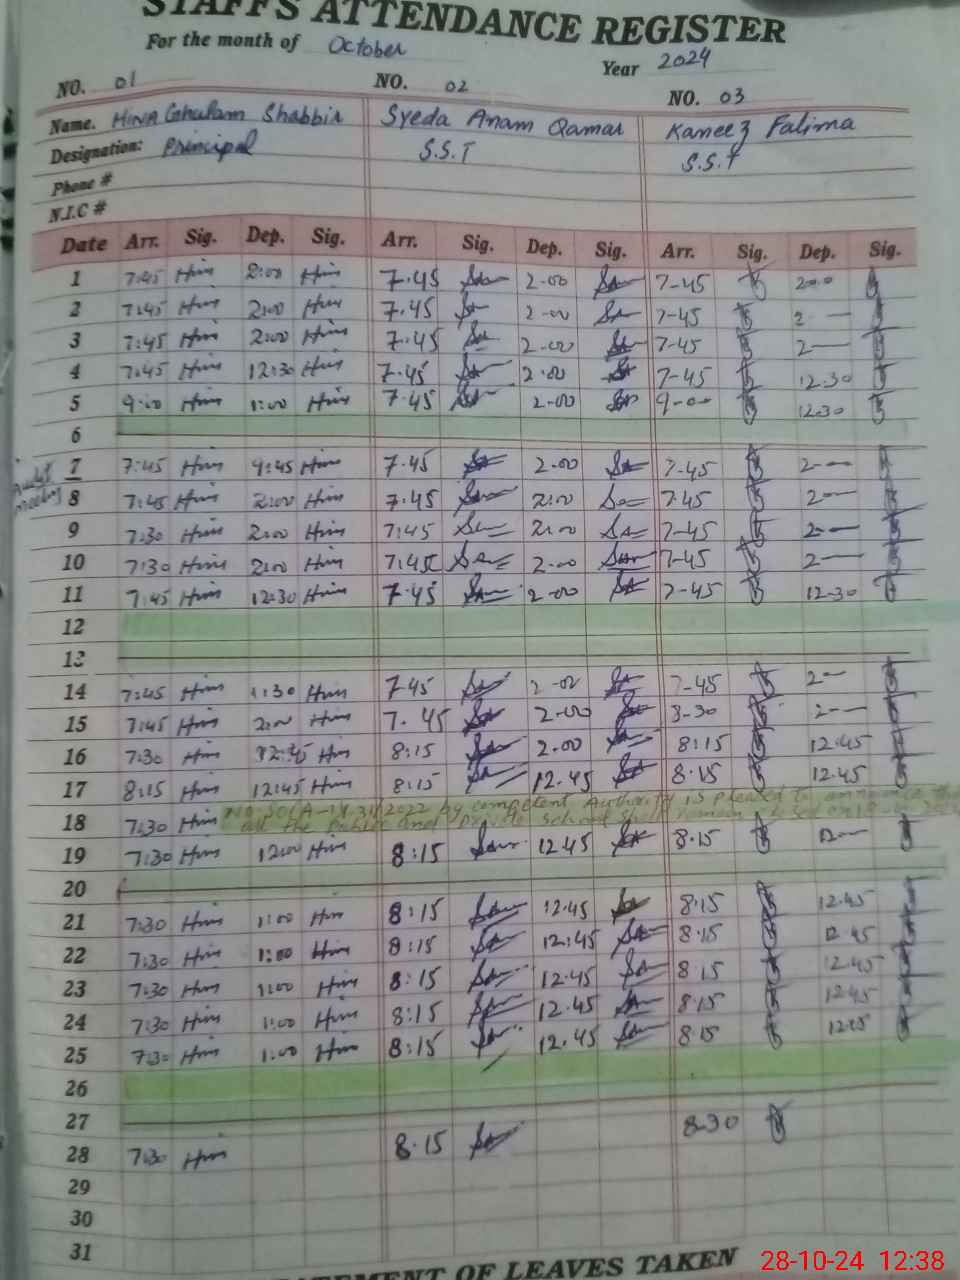 STAFFS ATTENDANCE REGISTER
For the month of October Year 2024
NO. 01 NO. 02 NO. 03
Name. Hina Ghulam Shabbir Syeda Anam Qamar Kaneez Fatima
Designation: Principal S.S.T S.S.T
Phone #
N.I.C #
Date Arr. Sig. Dep. Sig. Arr. Sig. Dep. Sig. Arr. Sig. Dep. Sig.
1 7:45 Hina 2:00 Hina 7.45 2.00 7-45 2.00
2 7:45 Hina 2:00 Hina 7.45 2-00 7-45 2-
3 7:45 Hina 2:00 Hina 7.45 2-00 7-45 2-
4 7:45 Hina 12:30 Hina 7.45 2.00 7-45 12.30
5 9:00 Hina 1:00 Hina 7.45 2-00 9-00 12.30
6
7 7:45 Hina 9:45 Hina 7.45 2.00 7-45 2-
meeting 8 7:45 Hina 2:00 Hina 7.45 2:00 7.45 2-
9 7:30 Hina 2:00 Hina 7:45 2:00 7-45 2-
10 7:30 Hina 2:00 Hina 7:45 2.00 7-45 2-
11 7:45 Hina 12:30 Hina 7.45 2-00 7-45 12-30
12
13
14 7:45 Hina 1:30 Hina 7.45 2-00 7-45 2-
15 7:45 Hina 2:00 Hina 7.45 2.00 3-30 2-
16 7:30 Hina 12:45 Hina 8:15 2.00 8:15 12.45
17 8:15 Hina 12:45 Hina 8:15 12.45 8.15 12.45
by competent Authority is pleased to announce that
18 7:30 Hina all the public and private school shall remain closed on
19 7:30 Hina 12:00 Hina 8:15 12.45 8.15
20
21 7:30 Hina 1:00 Hina 8:15 12.45 8.15 12.45
22 7:30 Hina 1:00 Hina 8:15 12:45 8.15 12.45
23 7:30 Hina 1:00 Hina 8:15 12.45 8.15 12.45
24 7:30 Hina 1:00 Hina 8:15 12.45 8.15 12.45
25 7:30 Hina 1:00 Hina 8:15 12.45 8.15
26
27
28 7:30 Hina 8.15 8-30
29
30
31
STATEMENT OF LEAVES TAKEN
28-10-24 12:38